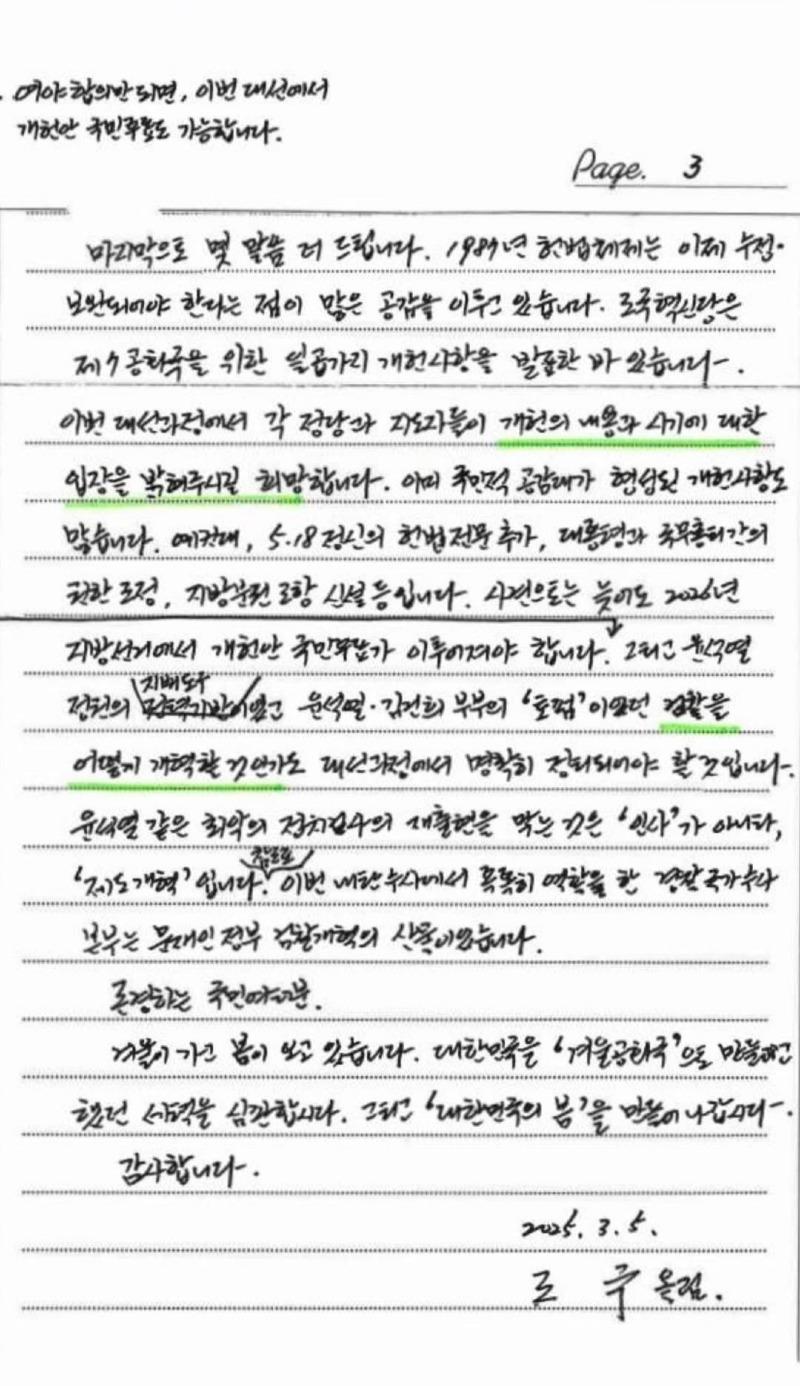 여야 합의만 되면, 이번 대선에서
개헌안 국민투표도 가능합니다.
Page. 3
마지막으로 몇 말씀 더 드립니다. 1987년 헌법체제는 이제 수정·
보완되어야 한다는 점이 많은 공감을 이루고 있습니다. 조국혁신당은
제7공화국을 위한 일곱가지 개헌사항을 발표한 바 있습니다.
이번 대선과정에서 각 정당과 지도자들이 개헌의 내용과 시기에 대한
입장을 밝혀주시길 희망합니다. 이미 국민적 공감대가 형성된 개헌사항도
많습니다. 예컨대, 5.18정신의 헌법전문 추가, 대통령과 국무총리간의
권한 조정, 지방분권 조항 신설 등입니다. 시점으로는 늦어도 2026년
지방선거에서 개헌안 국민투표가 이루어져야 합니다. 그리고 윤석열
지배도구
정권의 이었고 윤석열·김건희 부부의 '로펌'이었던 검찰을
어떻게 개혁할 것인가도 대선과정에서 명확히 정리되어야 할 것입니다.
윤석열 같은 최악의 정치검사의 재출현을 막는 것은 '인사'가 아니라,
참고로
'제도개혁'입니다. 이번 내란수사에서 톡톡히 역할을 한 경찰 국가수사
본부는 문재인 정부 검찰개혁의 산물이었습니다.
존경하는 국민여러분.
겨울이 가고 봄이 오고 있습니다. 대한민국을 '겨울공화국'으로 만들려고
했던 세력을 심판합시다. 그리고 '대한민국의 봄'을 만들어 나갑시다.
감사합니다.
2025. 3. 5.
조 국 올림.